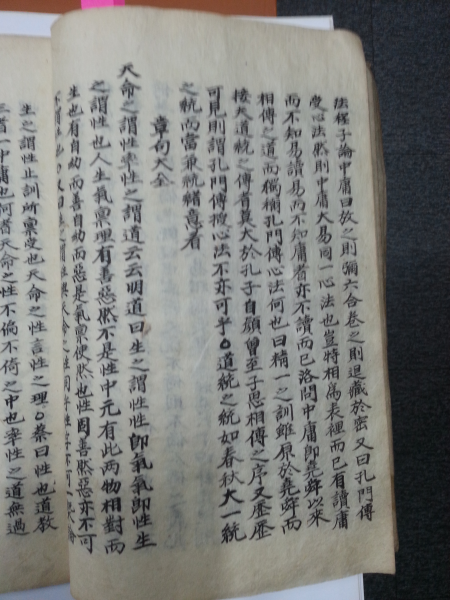 法程子論中庸曰放之則彌六合卷之則退藏於密又曰孔門傳
受心法然則中庸大易同一心法也豈特相爲表裡而已有讀庸
而不知易讀易而不知庸者亦不讀而已洛閩中庸卽堯舜以來
相傳之道而獨稱孔門傳心法何也曰精一之訓雖原於堯舜而
接夫道統之傳者莫大於孔子自顔曾至子思相傳之序又歷歷
可見則謂孔門傳授心法不亦可乎○道統之統如春秋大一統
之統而當兼統緖意看
章句大全
天命之謂性率性之謂道云云明道曰生之謂性性卽氣氣卽性生
之謂性也人生氣稟理有善惡然不是性中元有此两物相對而
生也有自幼而善有自幼而惡是氣稟使然也性固善然惡亦不可
生之謂性止訓所稟受也天命之性言性之理○蔡曰性也道敎
三者一中庸也何者天命之性不偏不倚之中也率性之道無過